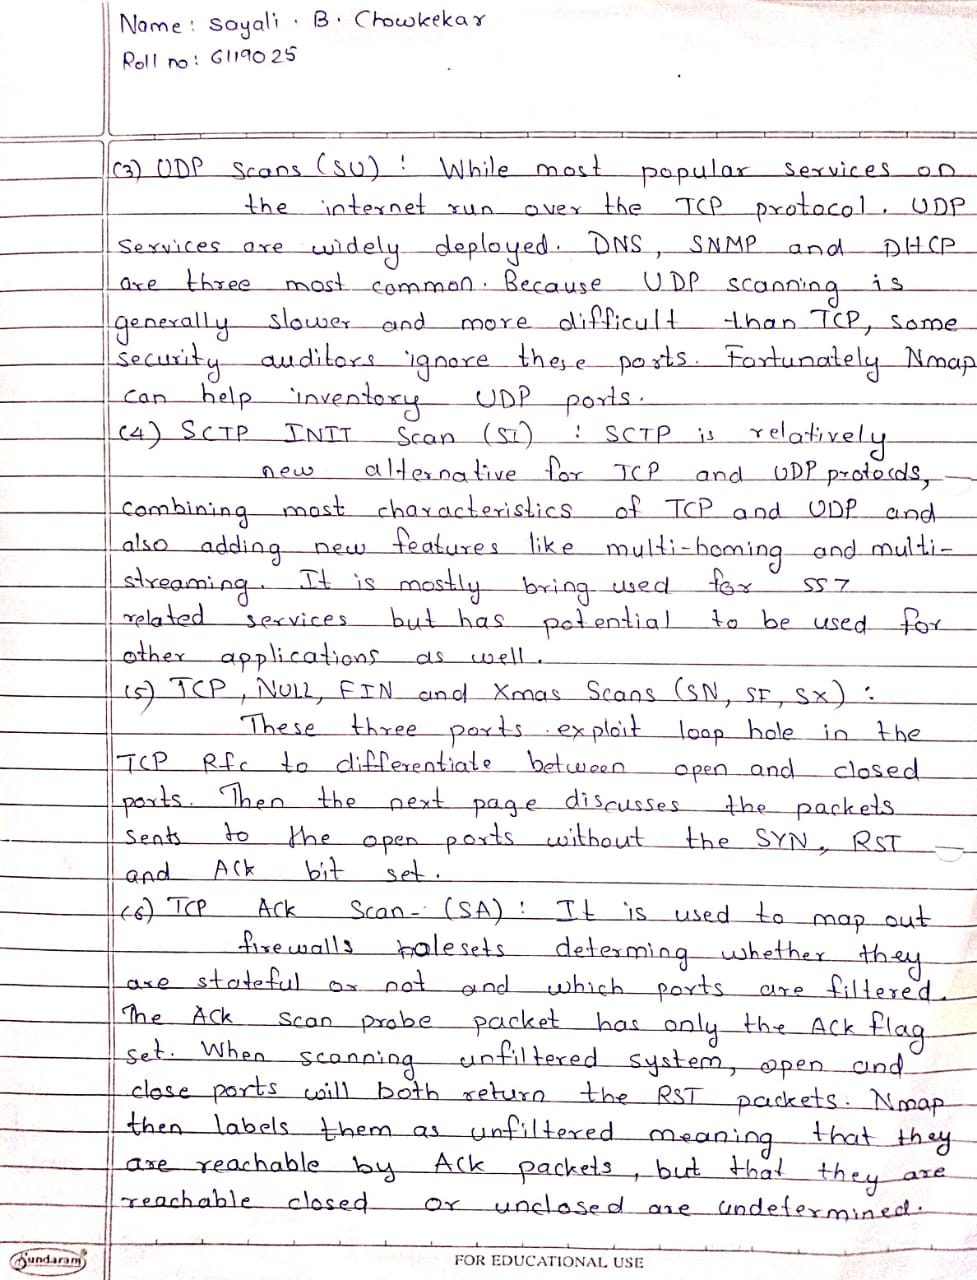 Name : Sayali . B . Chowkekar
Roll no : 6119025
(3) UDP Scans (SU) : While most popular services on
the internet run over the TCP protocol. UDP
Services are widely deployed. DNS, SNMP and DHCP
are three most common. Because UDP scanning is
generally slower and more difficult than TCP, some
security auditors ignore these ports. Fortunately Nmap
can help inventory UDP ports.
(4) SCTP INIT Scan (SI) : SCTP is relatively
new alternative for TCP and UDP protocds,
combining most characteristics of TCP and UDP and
also adding new features like multi-homing and multi-
streaming. It is mostly bring used for SS7
related services but has potential to be used for
other applications as well.
(5) TCP, NULL, FIN and Xmas Scans (SN, SF, SX) :
These three ports exploit loop hole in the
TCP Rfc to differentiate between open and closed
ports. Then the next page discusses the packets
sents to the open ports without the SYN, RST
and Ack bit set.
(6) TCP Ack Scan- (SA) : It is used to map out
firewalls halesets determing whether they
are stateful or not and which ports are filtered.
The Ack scan probe packet has only the Ack flag
set. When scanning unfiltered system, open and
close ports will both return the RST packets. Nmap
then labels them as unfiltered meaning that they
are reachable by Ack packets, but that they are
reachable closed or unclosed are undetermined.
Sundaram
FOR EDUCATIONAL USE